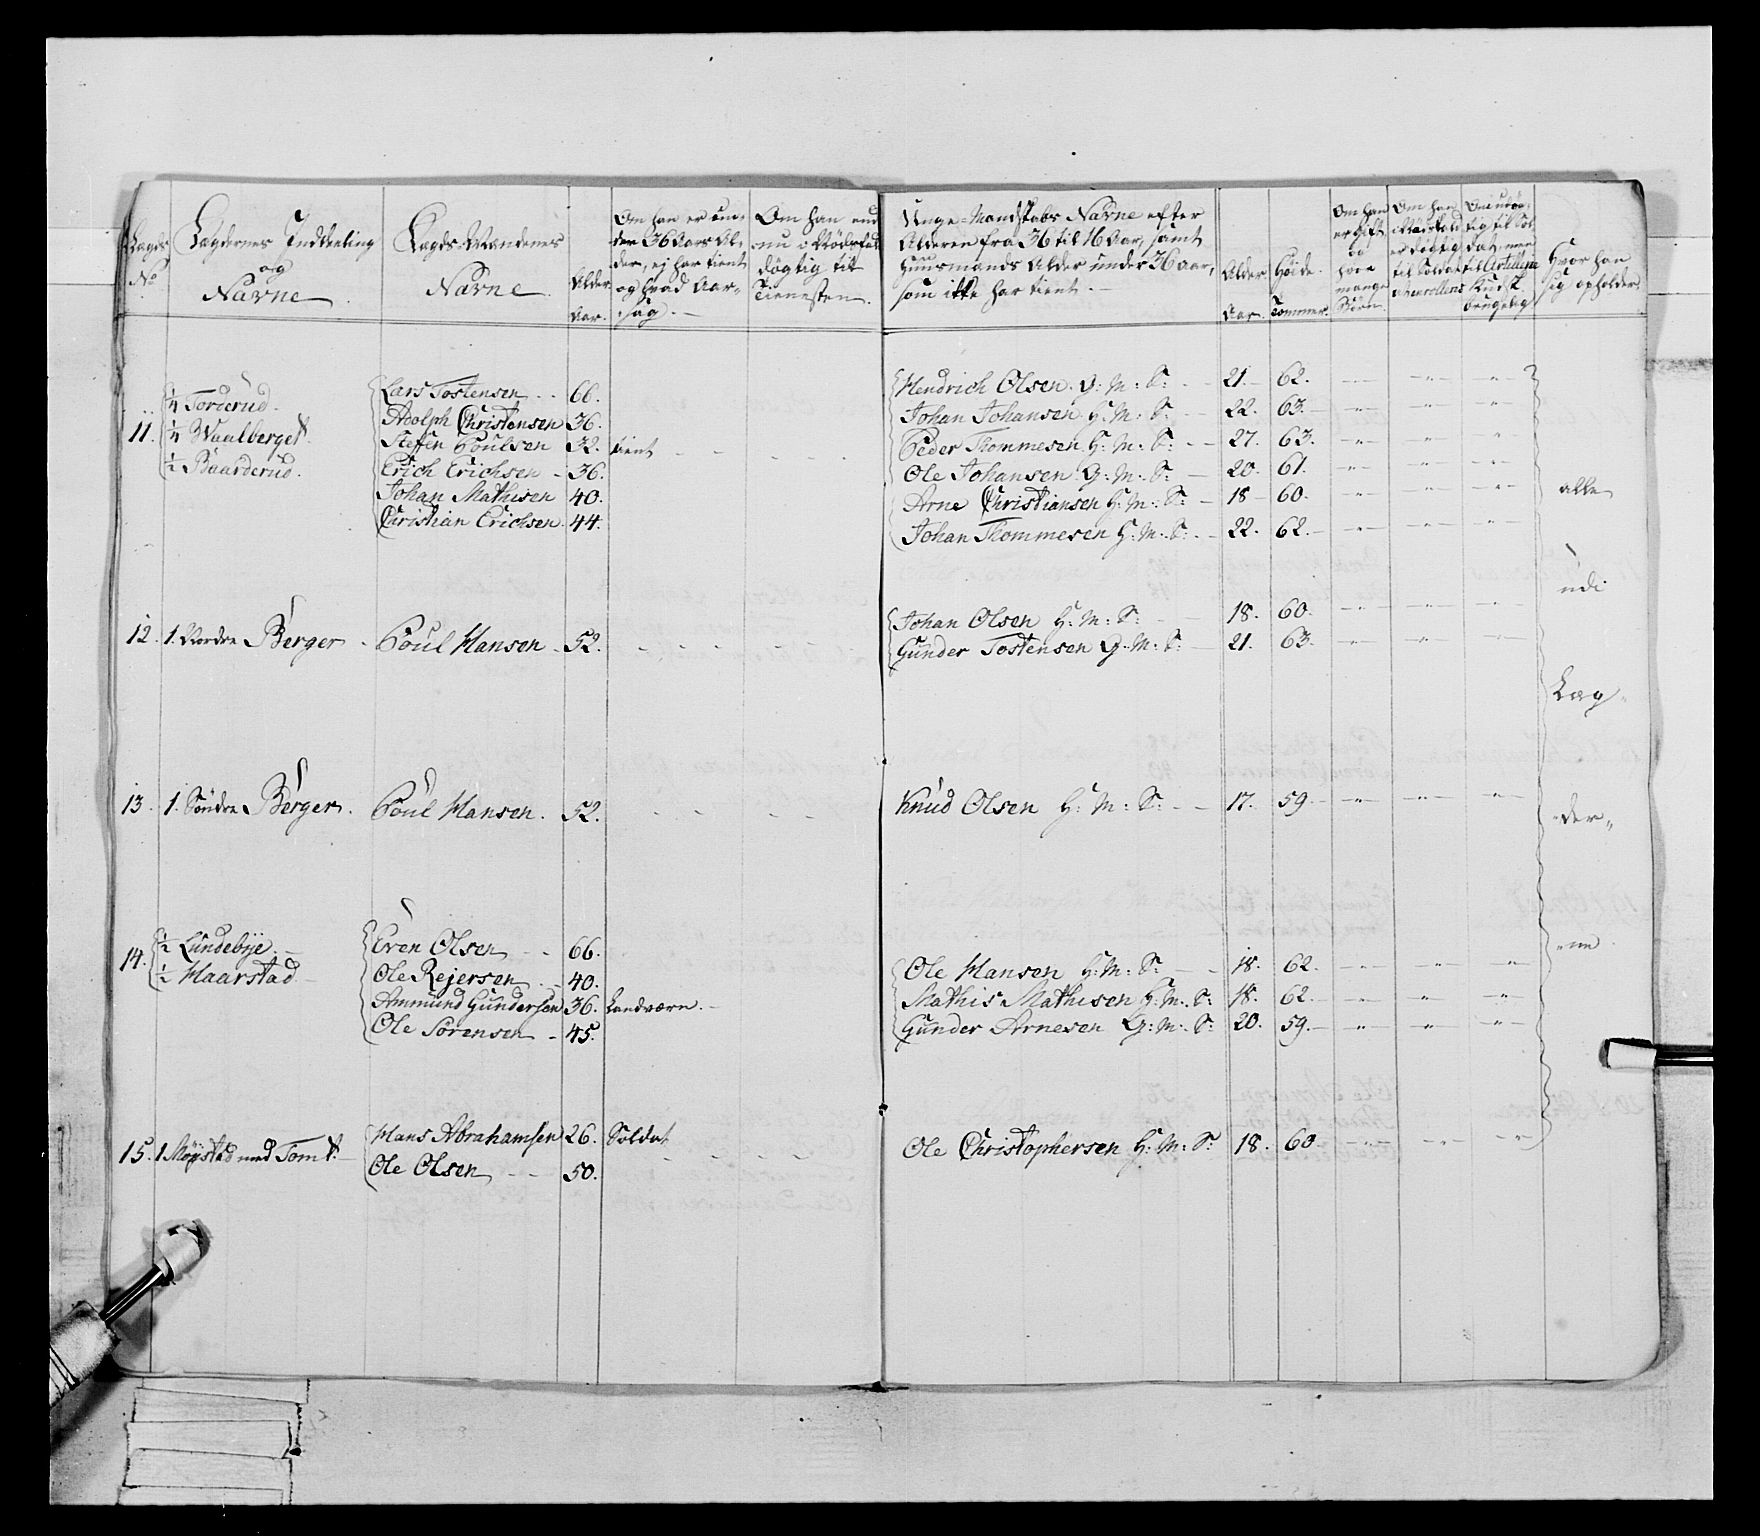 Lagds No
Lagdernes Inddeeling og Navne
Lagds-Mændenes Navne
Alder Aar.
Om han er under 36 Aars Alder, ej har tient og hvad Aarsag.
Om han endnu i Nødsfald døgtig til Tienesten.
Unge-Mandskabs Navne efter Alderen fra 36 til 16 Aar, samt Huusmands Alder under 36 Aar, som ikke har tient.
Alder Aar.
Høide Tommer.
Om han er gift og hvor mange Børn
Om han i Nødsfald er døgtig til Soldat
Om udøgtig til Soldat, men til Artillerie Kudsk brugelig
Hvor han sig opholder
11. 1/4 Torderud.
1/4 Waalberget.
1/2 Baarderud.
Lars Tostensen 66.
Adolph Christensen 36.
Steffen Poulsen 32. tient
Erich Erichsen 36.
Johan Mathisen 40.
Christian Erichsen 44.
Hendrich Olsen G: M: S: 21. 62.
Johan Johansen H: M: S: 22. 63.
Peder Thommesen H: M: S: 27. 63.
Ole Johansen G: M: S: 20. 61.
Arne Christiansen H: M: S: 18 60.
Johan Thommesen H: M: S: 22. 62.
12. 1. Nordre Berger Poul Hansen 52.
Johan Olsen H: M: S: 18. 60.
Gunder Tostensen G: M: S: 21. 63.
13. 1. Søndre Berger. Poul Hansen. 52.
Knud Olsen H: M: S: 17. 59
14. 1/2 Lundebye.
1/2 Haarstad
Even Olsen 66.
Ole Rejersen 40.
Ammund Gundersen 36. Landværn.
Ole Sørensen 45.
Ole Hansen H: M: S: 18. 62.
Mathis Mathisen H: M: S: 18. 62.
Gunder Arnesen G: M: S: 20. 59.
15. 1 Møystad med Tomt.
Hans Abrahamsen 26. Soldat
Ole Olsen 50.
Ole Christophersen H: M: S: 18. 60
alle
udi
Læg
der
ne